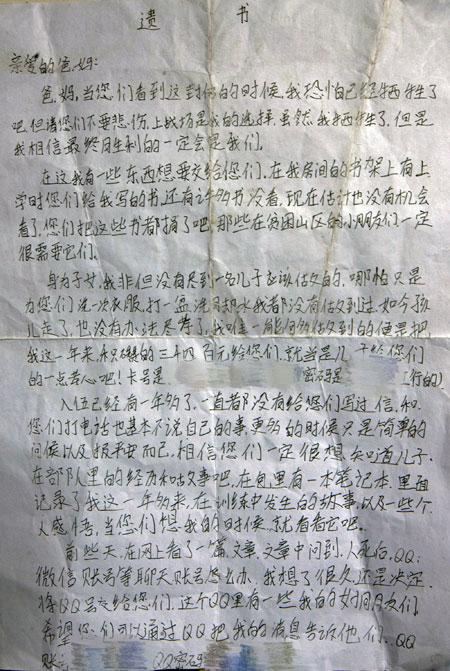 遗 书
亲爱的爸、妈:
爸、妈,当您们看到这封信的时候,我恐怕已经牺牲了
吧,但请您们不要悲伤,上战场是我的选择,虽然我牺牲了,但是
我相信最终胜利的一定会是我们。
在这我有一些东西想要交给您们,在我房间的书架上有上
学时您们给我写的书,还有许多书没看,现在估计也没有机会
看了,您们把这些书都捐了吧,那些在贫困山区的小朋友们一定
很需要它们。
身为子女,我非但没有尽到一名儿子应该做的,哪怕只是
为您们洗一次衣服,打一盆洗脚水我都没有做到过,如今孩
儿走了,也没有办法尽孝了,我唯一能何够做到的便是把
我这一年来积攒的三千四百元给您们,就当是儿子给您们
的一点苦心吧!卡号是 密码是 (行的)
入伍已经有一年多了,一直都没有给您们写过信,和
您们打电话也基本不说自己的事,更多的时候只是简单的
问候以及报平安而已,相信您们一定很想知道儿子
在部队里的经历和故事吧,在包里有一本笔记本,里面
记录了我这一年多来,在训练中发生的故事,以及一些个
人感悟,当您们想我的时候,就看看它吧。
前些天,在网上看了一篇文章,文章中问到,人死后,QQ;
微信账号等聊天账号怎么办,我想了很久,还是决定
将QQ号交给您们,这个QQ里有一些我的好朋友们,
希望您们可以通过QQ把我的消息告诉他们。QQ
账号 QQ密码